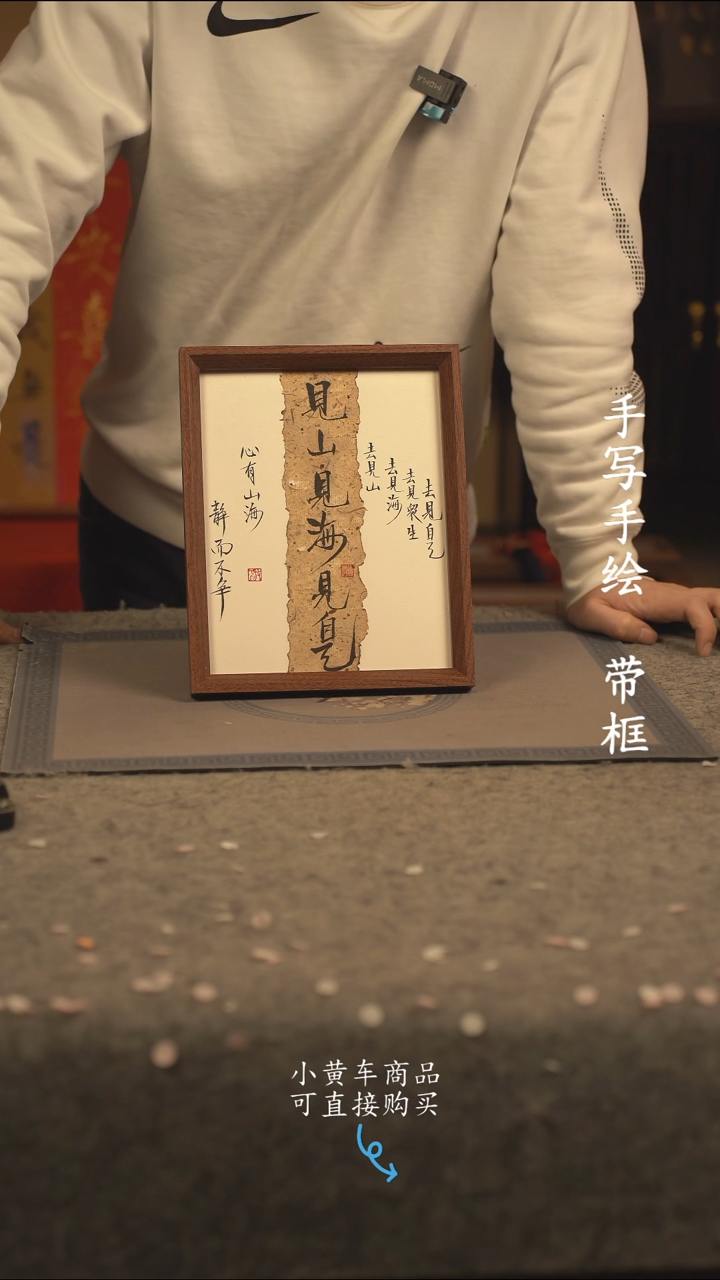 见山见海见自己
去見自己
去見衆生
去見海
去見山
心有山海
静而不争
手写手绘 带框
小黄车商品
可直接购买